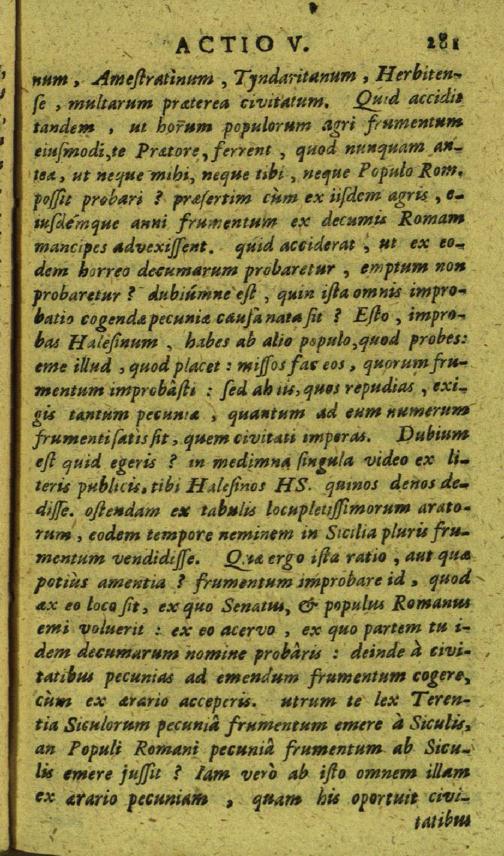 ACTIO V. 281
num, Amestratinum, Tyndaritanum, Herbiten-
se, multarum præterea civitatum. Quid accidit
tandem, ut horum populorum agri frumentum
eiusmodi, te Prætore, ferrent, quod nunquam an-
tea, ut neque mihi, neque tibi, neque Populo Rom.
possit probari? præsertim cùm ex iisdem agris, e-
iusdémque anni frumentum ex decumis Romam
mancipes advexissent. quid acciderat, ut ex eo-
dem horreo decumarum probaretur, emptum non
probaretur? dubiúmne est, quin ista omnis impro-
batio cogendæ pecuniæ causa nata sit? Esto, impro-
bas Halesinum, habes ab alio populo, quod probes:
eme illud, quod placet: missos fac eos, quorum fru-
mentum improbâsti: sed ab iis, quos repudias, exi-
gis tantum pecuniæ, quantum ad eum numerum
frumenti satis sit, quem civitati imperas. Dubium
est quid egeris? in medimna singula video ex li-
teris publicis, tibi Halesinos HS. quinos denos de-
disse. ostendam ex tabulis locupletissimorum arato-
rum, eodem tempore neminem in Sicilia pluris fru-
mentum vendidisse. Quæ ergo ista ratio, aut quæ
potiùs amentia? frumentum improbare id, quod
ex eo loco sit, ex quo Senatus, & populus Romanus
emi voluerit: ex eo acervo, ex quo partem tu i-
dem decumarum nomine probâris: deinde à civi-
tatibus pecunias ad emendum frumentum cogere,
cùm ex ærario acceperis. utrum te lex Teren-
tia Siculorum pecuniâ frumentum emere à Siculis,
an Populi Romani pecuniâ frumentum ab Sicu-
lis emere jussit? Iam verò ab isto omnem illam
ex ærario pecuniam, quam his oportuit civi-
tatibus